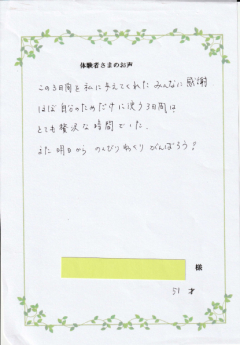 体験者さまのお声
この3日間を私に与えてくれた みんなに感謝
ほぼ自分のためだけに使う3日間は
とても贅沢な時間でした。
また明日から のんびりゆっくり がんばろう?
様
51 才